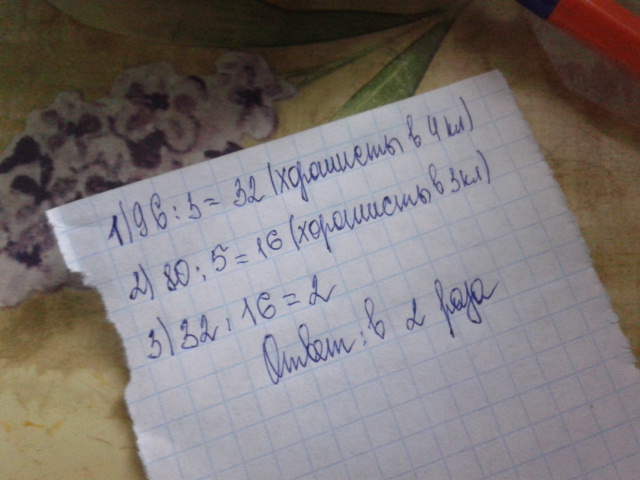 1) 96 : 3 = 32 (хорошисты в 4 кл)
2) 80 : 5 = 16 (хорошисты в 3 кл)
3) 32 : 16 = 2
Ответ: в 2 раза